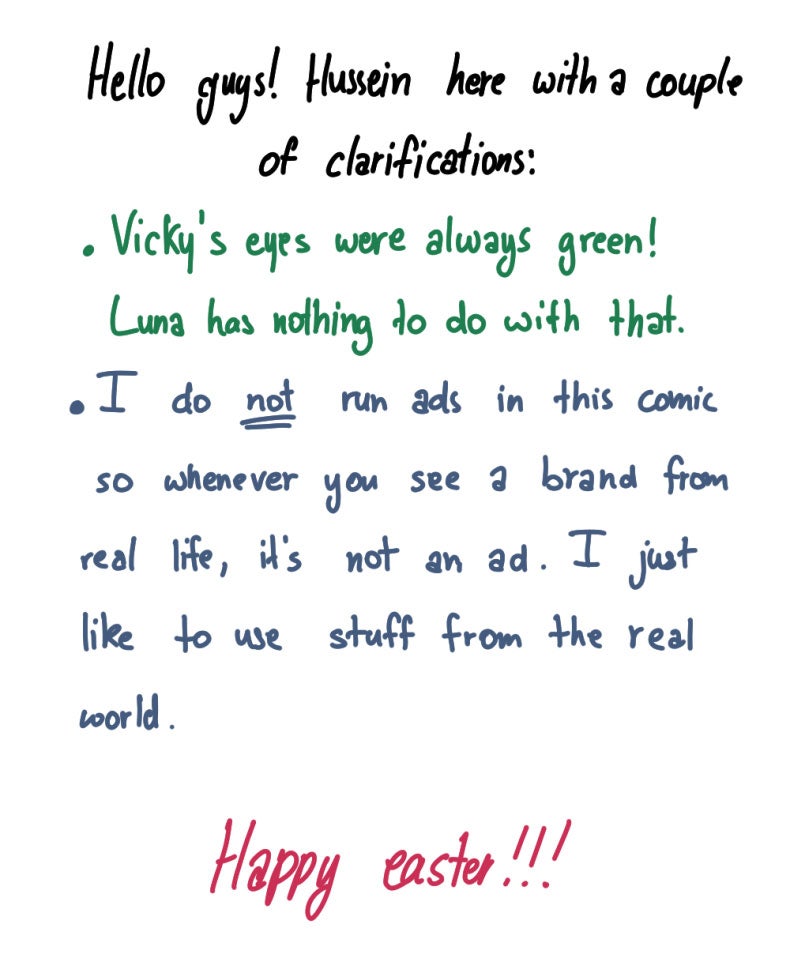 Hello guys! Hussein here with a couple
of clarifications:
• Vicky's eyes were always green!
Luna has nothing to do with that.
• I do not run ads in this comic
so whenever you see a brand from
real life, it's not an ad. I just
like to use stuff from the real
world.
Happy easter!!!